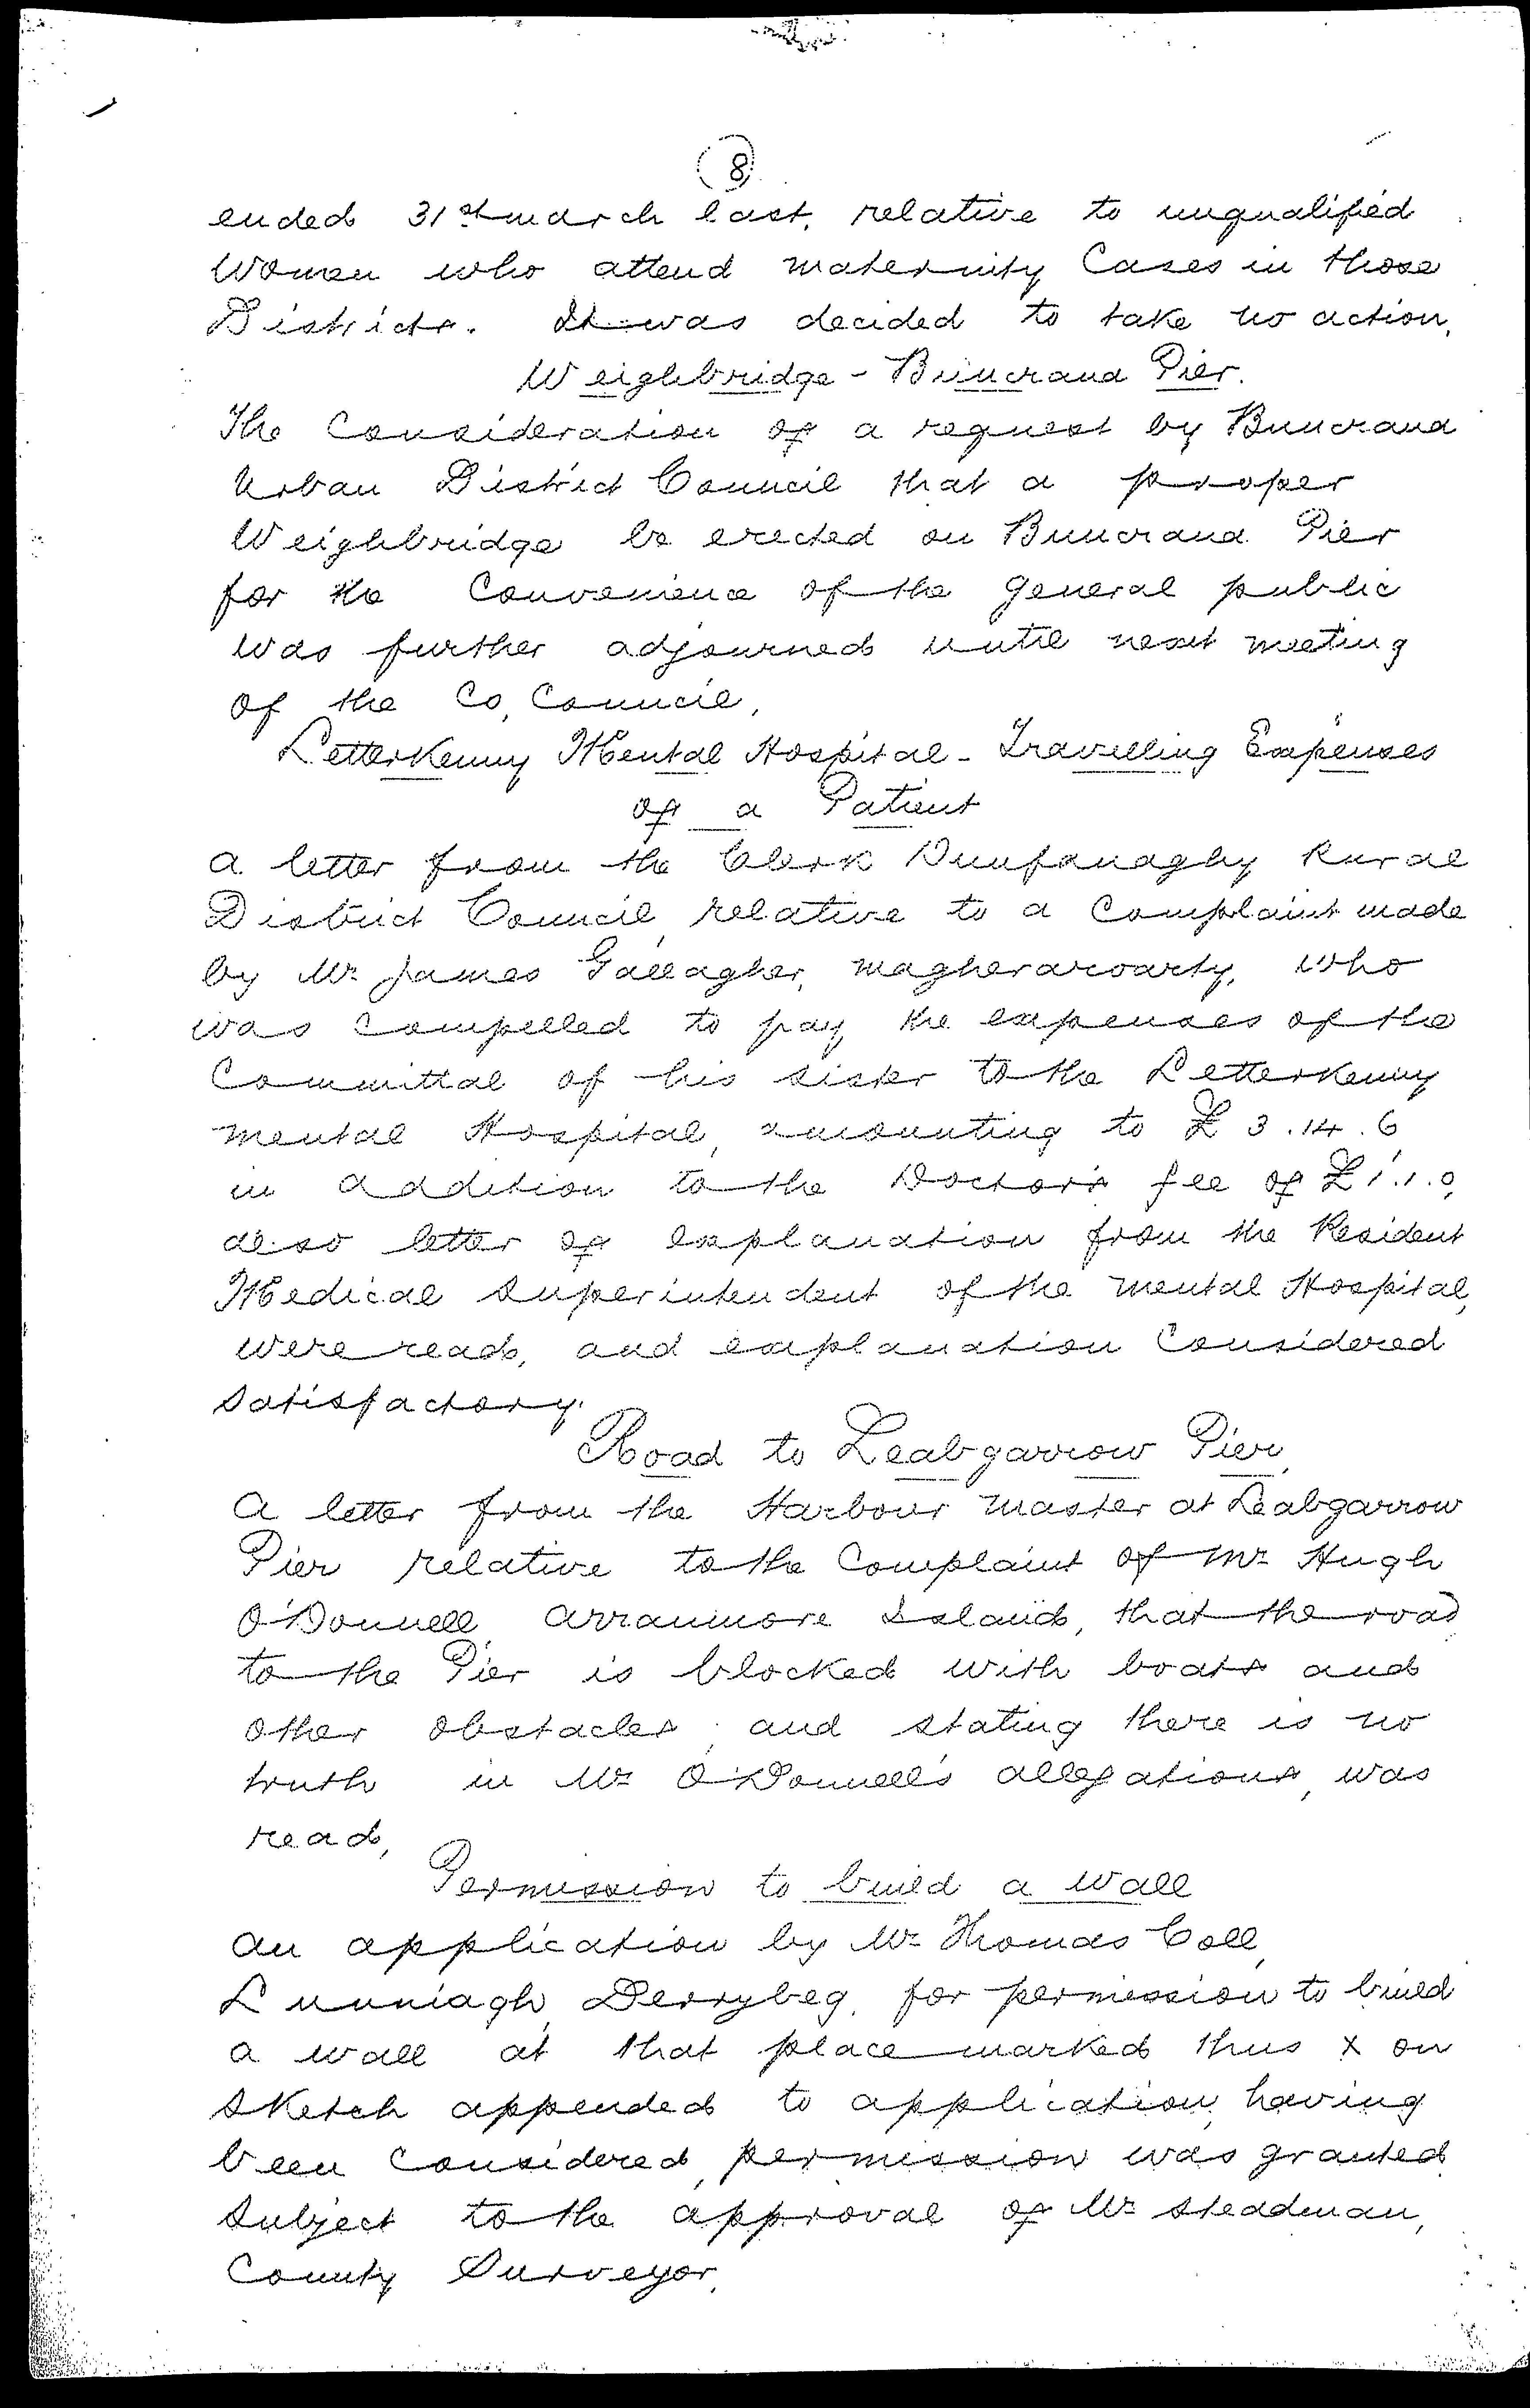 (8)
ended 31st march last, relative to unqualified
Women who attend maternity Cases in those
Districts. It was decided to take no action,
Weighbridge - Buncrana Pier.
The Consideration of a request by Buncrana
Urban District Council that a proper
Weighbridge be erected on Buncrana Pier
for the Convenience of the general public
was further adjourned until next meeting
of the Co, Council,
Letterkenny Mental Hospital - Travelling Expenses
of a Patient
a letter from the Clerk Dunfanaghy Rural
District Council, relative to a Complaint made
by Mr James Gallagher, magheraroarty, who
was compelled to pay the expenses of the
Committal of his sister to the Letterkenny
mental Hospital, amounting to £3.14.6
in addition to the Doctor's fee of £1.1.0,
also letter of explanation from the Resident
Medical Superintendent of the mental Hospital,
were read, and explanation Considered
satisfactory.
Road to Leabgarrow Pier,
a letter from the Harbour master at Leabgarrow
Pier relative to the Complaint of Mr Hugh
O'Donnell, arranmore Island, that the road
to the Pier is blocked with boats and
other obstacles, and stating there is no
truth in Mr O'Donnell's allegations, was
read,
Permission to build a wall
an application by Mr Thomas Coll,
Lunniagh, Derrybeg, for permission to build
a wall at that place marked thus x on
sketch appended to application, having
been Considered, permission was granted
subject to the approval of Mr Steadman,
County Surveyor,